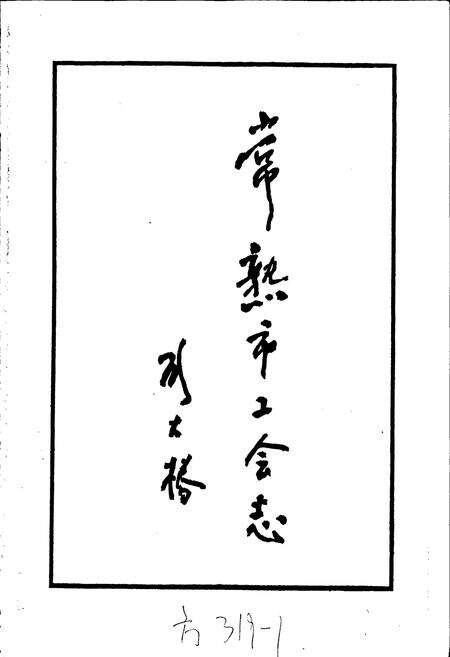 常熟市工会志
大椿
方319-1